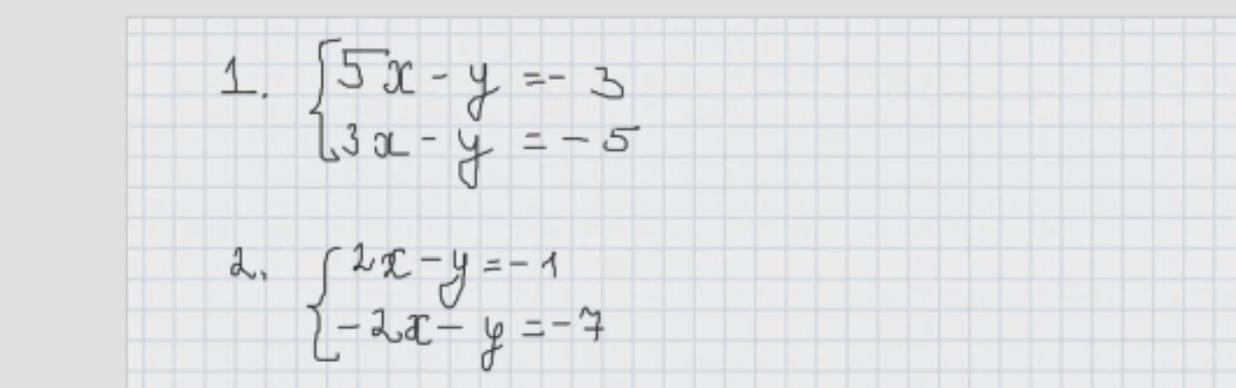 1. { 5x - y = - 3
3x - y = - 5
2. { 2x - y = - 1
- 2x - y = - 7